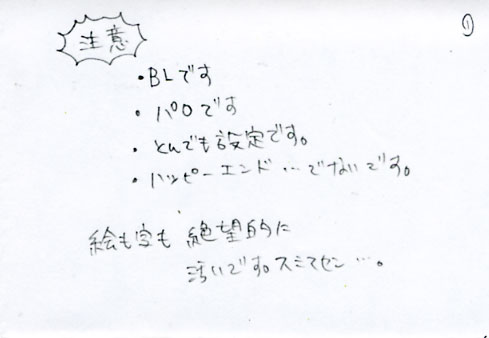 ①
注意
・BLです
・パロです
・とんでも設定です。
・ハッピーエンド…でないです。
絵も字も 絶望的に
汚いです。スミマセン…。